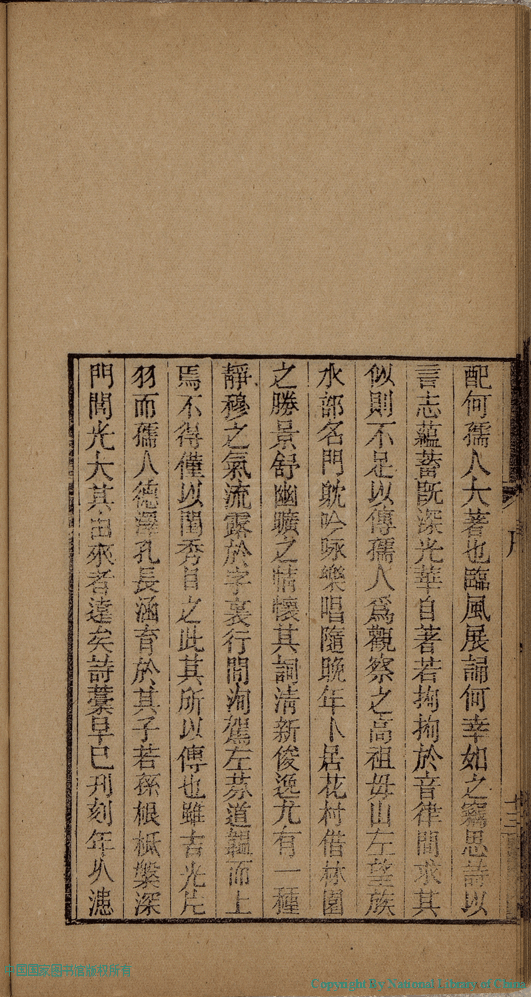 配何孺人大著也臨風展誦何幸如之竊思詩以
言志蘊蓄旣深光華自著若拘拘於音律間求其
似則不足以傳孺人爲觀察之高祖母山左望族
水部名門耽吟咏樂唱隨晚年卜居花村借林園
之勝景舒幽曠之情懷其詞清新俊逸尤有一種
靜穆之氣流露於字裏行間洵駕左芬道韞而上
焉不得僅以閨秀目之此其所以傳也雖吉光片
羽而孺人德澤孔長涵育於其子若孫根柢槃深
門閭光大其由來者遠矣詩藁早已刋刻年乆漶
序
十三
中国国家图书馆授权所有
Copyright By National Library of China